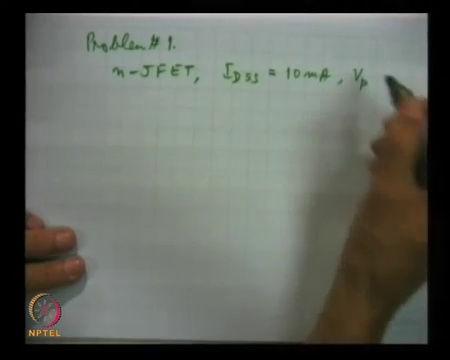 Problem # 1.
n-JFET, I_DSS = 10 mA, V_p
NPTEL